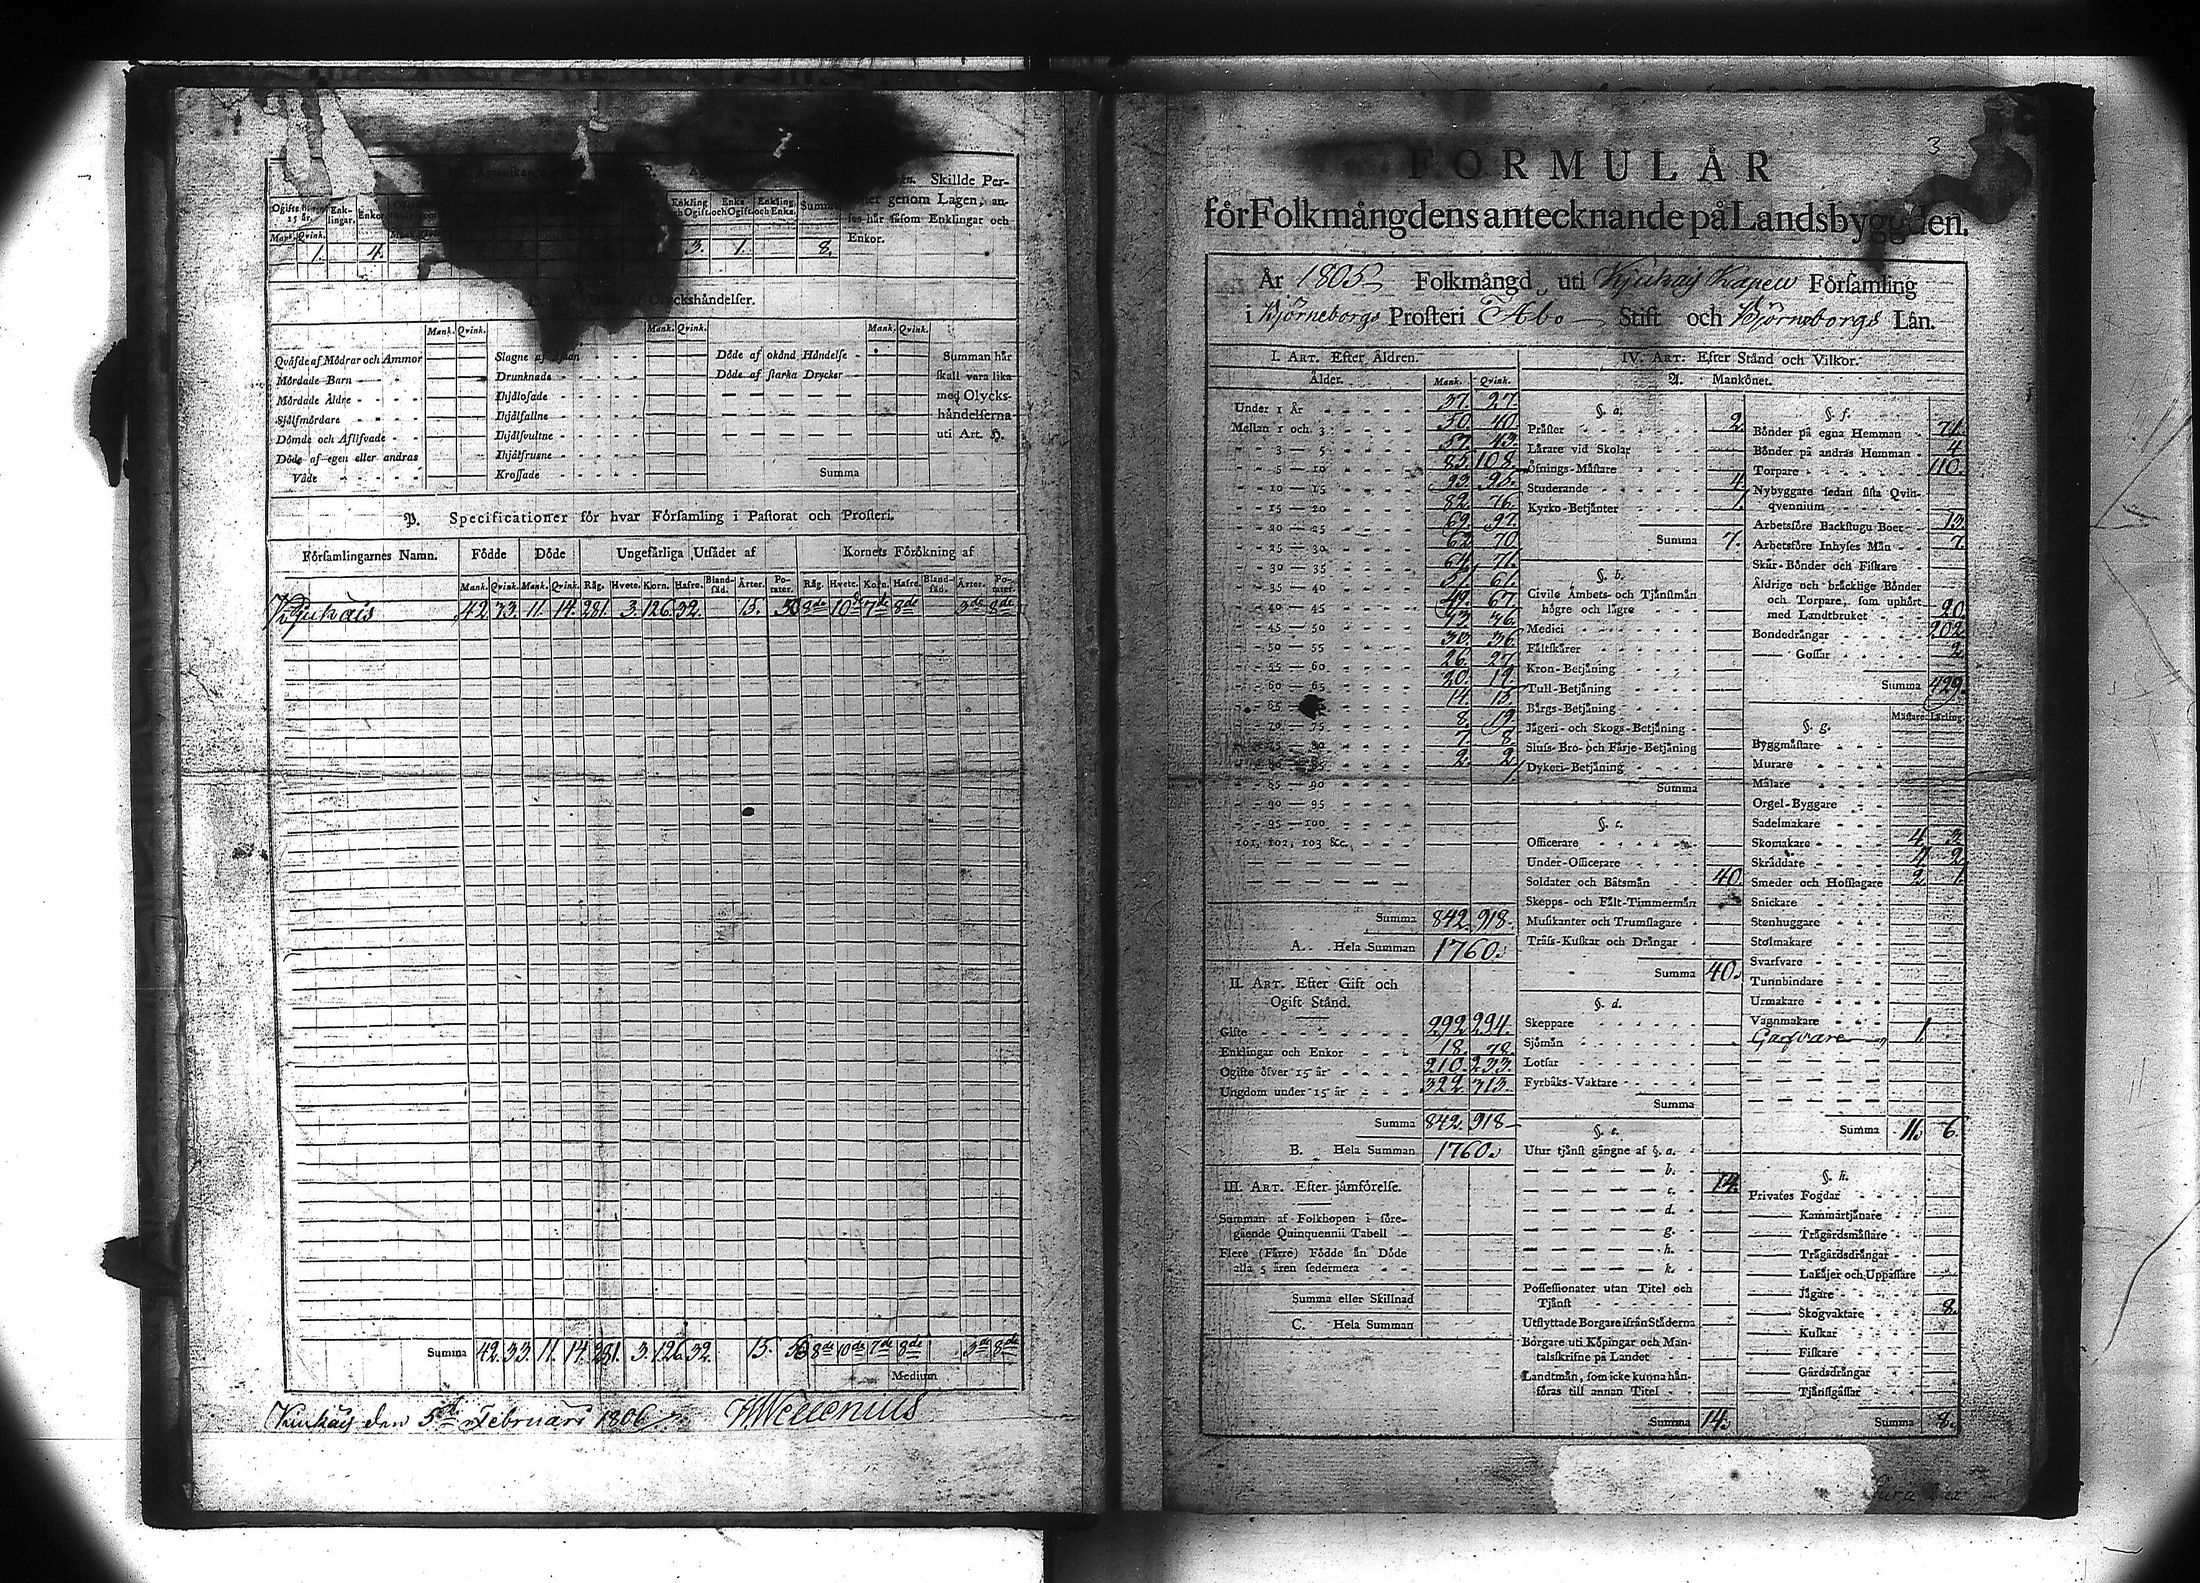 Skillde Per-
genom Lagen, an-
ses här såsom Enklingar och
Enkor.
Ogifte öfver 15 år. Enk-lingar. Enkor.
Enkling och Ogift. Enka och Ogift. Enkling och Enka. Summa
Mank. Qvink.
1. 4. 3. 1. 8.
Döde af Olyckshändelser.
Mank. Qvink. Mank. Qvink. Mank. Qvink.
Qväfde af Mödrar och Ammor
Mördade Barn
Mördade Äldre
Självmördare
Dömde och Aflifvade
Döde af egen eller andras
Våde
Slagne af
Drunknade
Ihjälosade
Ihjälfallne
Ihjälsvultne
Ihjälfrusne
Krossade
Döde af okänd Händelse
Döde af starka Drycker
Summa
Summan här
skall vara lika
med Olycks-
händelserna
uti Art. H.
P. Specificationer för hvar Församling i Pastorat och Prosteri.
Församlingarnes Namn. Födde Döde Ungefärliga Utsädet af Kornets Förökning af
Mank. Qvink. Mank. Qvink. Råg. Hvete. Korn. Hafre. Bland-säd. Ärter. Po-tater. Råg. Hvete. Korn. Hafre. Bland-säd. Ärter. Po-tater.
Kjukais 42. 33. 11. 14. 281. 3. 126. 32. 15. 8de 10de 7de 8de 3de 8de
Summa 42. 33. 11. 14. 281. 3. 126. 32. 15. 8de 10de 7de 8de 3de 8de
Medium
Kiukais den 5te Februari 1806.
3
FORMULÄR
för Folkmängdens antecknande på Landsbyggden.
År 1805 Folkmängd uti Kjukais Kapell Församling
i Björneborgs Prosteri Åbo Stift och Björneborgs Län.
I. ART. Efter Åldren.
Ålder. Mank. Qvink.
Under 1 År 37. 27.
Mellan 1 och 3 50. 40.
3 — 5 57. 43.
5 — 10 85. 108.
10 — 15 93. 95.
15 — 20 82. 76.
20 — 25 69. 97.
25 — 30 62. 70.
30 — 35 64. 71.
35 — 40 51. 61.
40 — 45 49. 67.
45 — 50 43. 36.
50 — 55 30. 36.
55 — 60 26. 27.
60 — 65 20. 19.
65 — 14. 15.
70 — 75 8. 19.
75 — 80 7. 8.
85 2. 2.
85 — 90 1.
90 — 95
95 — 100
101, 102, 103 &c.
Summa 842. 918.
A. Hela Summan 1760.
II. ART. Efter Gift och
Ogift Stånd.
Gifte 292. 294.
Enklingar och Enkor 18. 78.
Ogifte öfver 15 år 210. 233.
Ungdom under 15 år 322. 313.
Summa 842. 918
B. Hela Summan 1760.
III. ART. Efter jämförelse.
Summan af Folkhopen i före-
gående Quinquennii Tabell
Flere (Färre) Födde än Döde
alla 5 åren sedermera
Summa eller Skillnad
C. Hela Summan
IV. ART: Efter Stånd och Vilkor.
A. Mankönet.
§. a.
Präster 2.
Lärare vid Skolar
Öfnings-Mästare
Studerande 4.
Kyrko-Betjänter 1.
Summa 7.
§. b.
Civile Ämbets- och Tjänstmän
högre och lägre
Medici
Fältskärer
Kron-Betjäning
Tull-Betjäning
Bärgs-Betjäning
Jägeri- och Skogs-Betjäning
Sluss- Bro- och Färje-Betjäning
Dykeri-Betjäning
Summa
§. c.
Officerare
Under-Officerare
Soldater och Båtsmän 40.
Skepps- och Fält-Timmermän
Musikanter och Trumslagare
Träss-Kuskar och Drängar
Summa 40.
§. d.
Skeppare
Sjömän
Lotsar
Fyrbåks-Vaktare
Summa
§. e.
Utur tjänst gångne af §. a.
b.
c. 14.
d.
g.
h.
k.
Possessionater utan Titel och
Tjänst
Utflyttade Borgare ifrån Städerna
Borgare uti Köpingar och Man-
talsskrifne på Landet
Landtmän, som icke kunna hän-
föras till annan Titel
Summa 14.
§. f.
Bönder på egna Hemman 71.
Bönder på andras Hemman 4
Torpare 110.
Nybyggare sedan sista Qvin-
qvennium
Arbetsföre Backstugu Boer 13.
Arbetsföre Inhyses Män 7.
Skär-Bönder och Fiskare
Äldrige och bräcklige Bönder
och Torpare, som uphört
med Landtbruket 20.
Bondedrängar 202.
Gossar 2.
Summa 429.
§. g. Mästare Lärling.
Byggmästare
Murare
Målare
Orgel-Byggare
Sadelmakare
Skomakare 4. 3.
Skräddare 4. 2.
Smeder och Hofslagare 2. 1.
Snickare
Stenhuggare
Stolmakare
Svarfvare
Tunnbindare
Urmakare
Vagnmakare
Garfvare 1.
Summa 11. 6.
§. h.
Privates Fogdar
Kammartjänare
Trägårdsmästare
Trägårdsdrängar
Lakäjer och Uppassare
Jägare
Skogvaktare 8.
Kuskar
Fiskare
Gårdsdrängar
Tjänstgåssar
Summa 8.